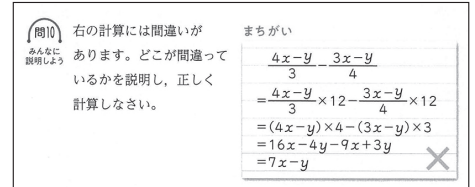 問10
みんなに
説明しよう
右の計算には間違いが
あります。どこが間違って
いるかを説明し，正しく
計算しなさい。
まちがい
4x−y/3 − 3x−y/4
= 4x−y/3 ×12− 3x−y/4 ×12
=(4x−y)×4−(3x−y)×3
=16x−4y−9x+3y
=7x−y